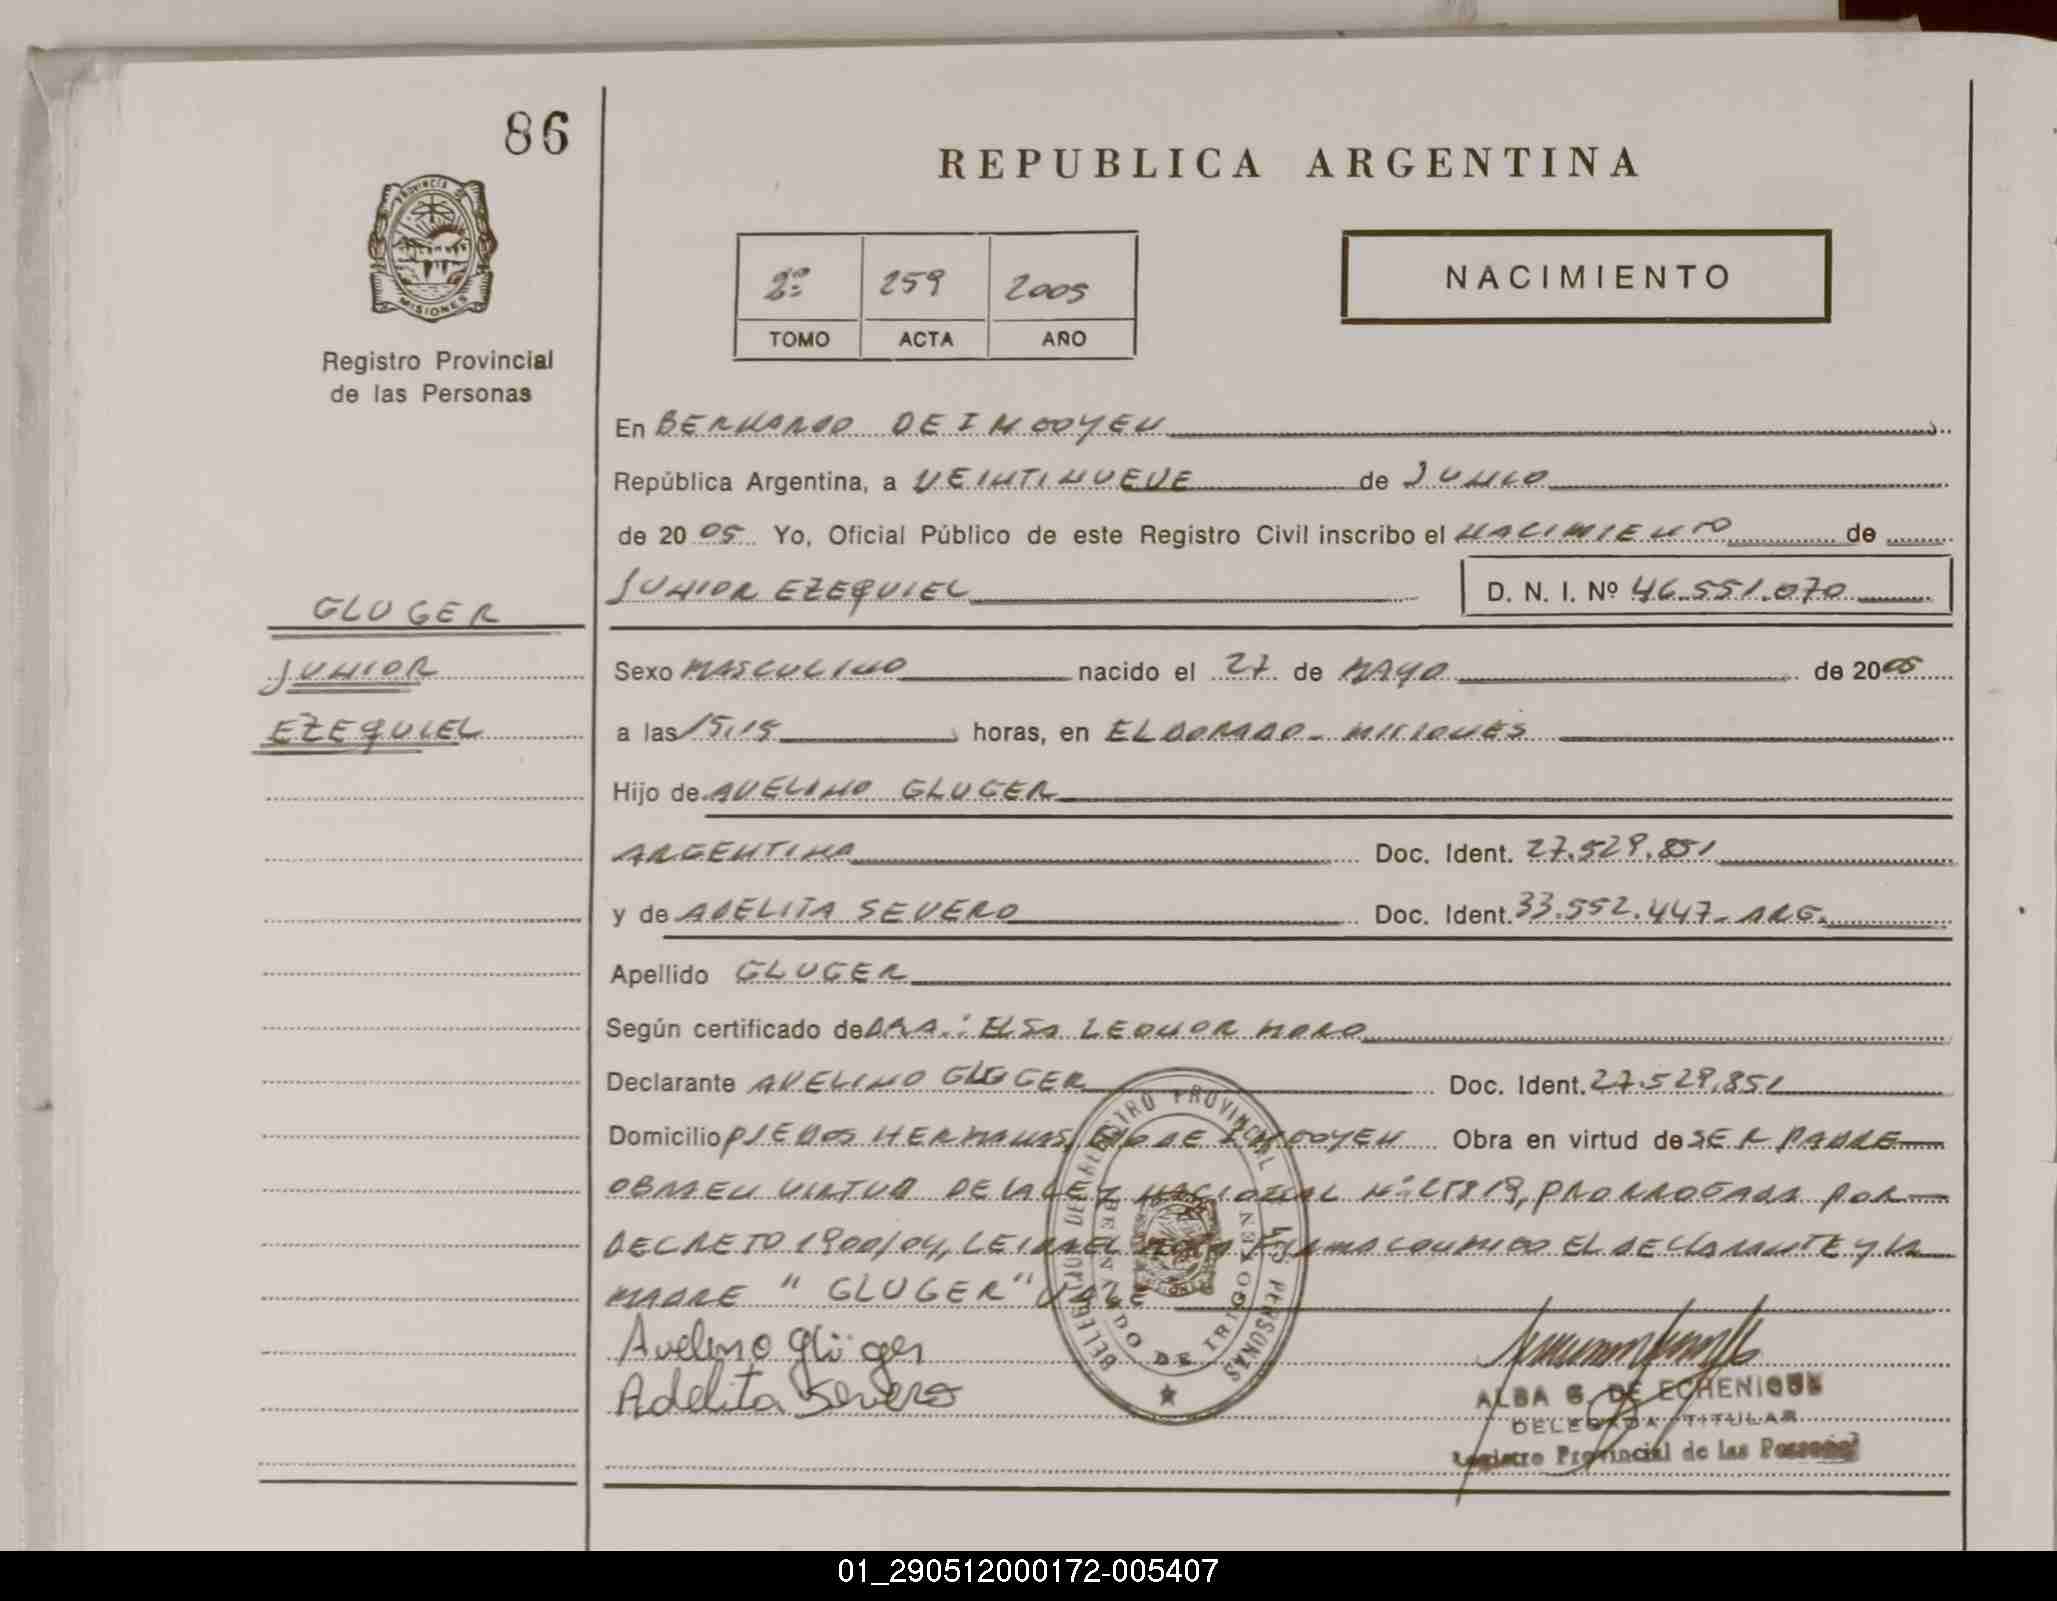 86
PROVINCIA DE
MISIONES
Registro Provincial
de las Personas
REPUBLICA ARGENTINA
2º 259 2005
TOMO ACTA AÑO
NACIMIENTO
En BERNARDO DE IRIGOYEN
República Argentina, a VEINTINUEVE de JUNIO
de 2005 Yo, Oficial Público de este Registro Civil inscribo el NACIMIENTO de
JUNIOR EZEQUIEL D. N. I. Nº 46.551.070
GLUGER
JUNIOR
EZEQUIEL
Sexo MASCULINO nacido el 27 de MAYO de 2005
a las 15,15 horas, en ELDORADO - MISIONES
Hijo de AVELINO GLUGER
ARGENTINA Doc. Ident. 27.529.851
y de ADELITA SEVERO Doc. Ident. 33.552.447 - ARG.
Apellido GLUGER
Según certificado de DRA.: ELSA LEONOR MORO
Declarante AVELINO GLUGER Doc. Ident. 27.529.851
Domicilio PJE DOS HERMANAS, BDO DE IRIGOYEN Obra en virtud de SER PADRE
OBRA EN VIRTUD DE LA LEY NACIONAL Nº 25819, PRORROGADA POR
DECRETO 1900/04, LEIDA EL ACTA FIRMA CONMIGO EL DECLARANTE Y LA
MADRE "GLUGER" VALE
Avelino Glüger
Adelita Severo
DELEGACIO DEL REGISTRO PROVINCIAL DE LAS PERSONAS
BERNARDO DE IRIGOYEN
ALBA G. DE ECHENIQUE
DELEGADA TITULAR
Registro Provincial de las Personas
01_290512000172-005407